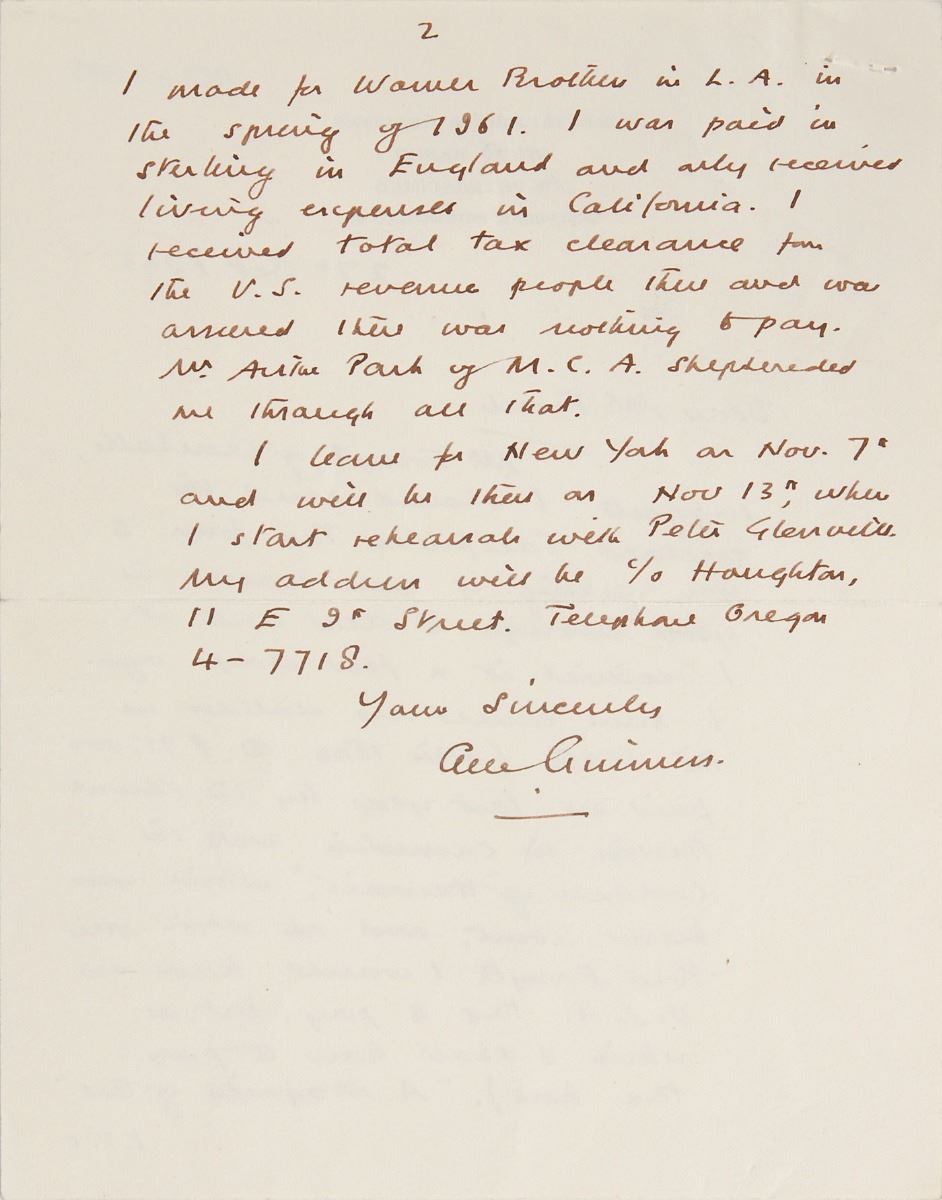 2
I made for Warner Brothers in L.A. in
the spring of 1961. I was paid in
sterling in England and only received
living expenses in California. I
received total tax clearance from
the U.S. revenue people there and was
assured there was nothing to pay.
Mr Arthur Park of M.C.A. shepherded
me through all that.
I leave for New York on Nov. 7th
and will be there on Nov 13th, when
I start rehearsals with Peter Glenville.
My address will be c/o Houghton,
11 E 9th Street. Telephone Oregon
4-7718.
Yours Sincerely
Alec Guinness.